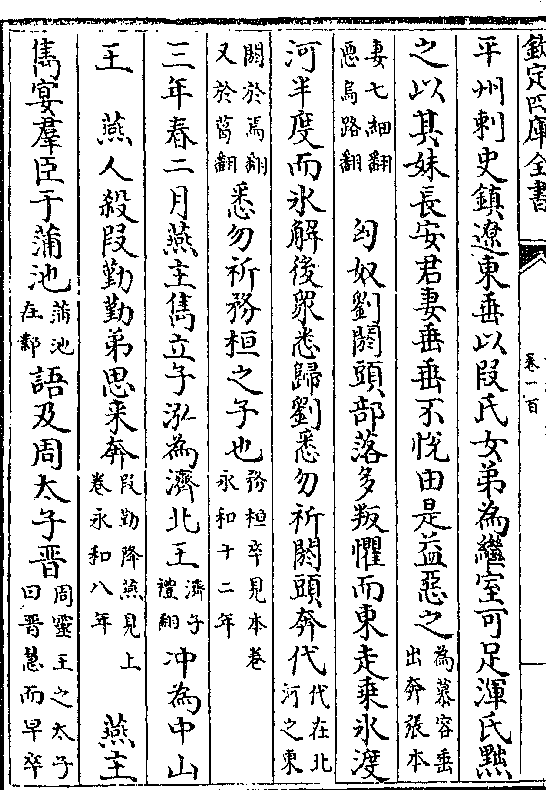 欽定四庫全書
卷一百
平州刺史鎮遼東垂以段氏女弟為繼室可足渾氏黜
之以其妹長安君妻垂垂不悅由是益惡之為慕容垂出奔張本
妻七細翻惡烏路翻　匈奴劉閼頭部落多叛懼而東走乗氷渡
河半度而氷解後衆悉歸劉悉勿祈閼頭奔代代在北河之東
閼於焉翻又於葛翻悉勿祈務桓之子也務桓卒見本卷永和十二年
三年春二月燕主雋立子泓為濟北王濟子禮翻沖為中山
王　燕人殺段勤勤弟思来奔段勤降燕見上卷永和八年　燕主
雋宴羣臣于蒲池蒲池在鄴語及周太子晉周靈王之太子曰晉慧而早卒